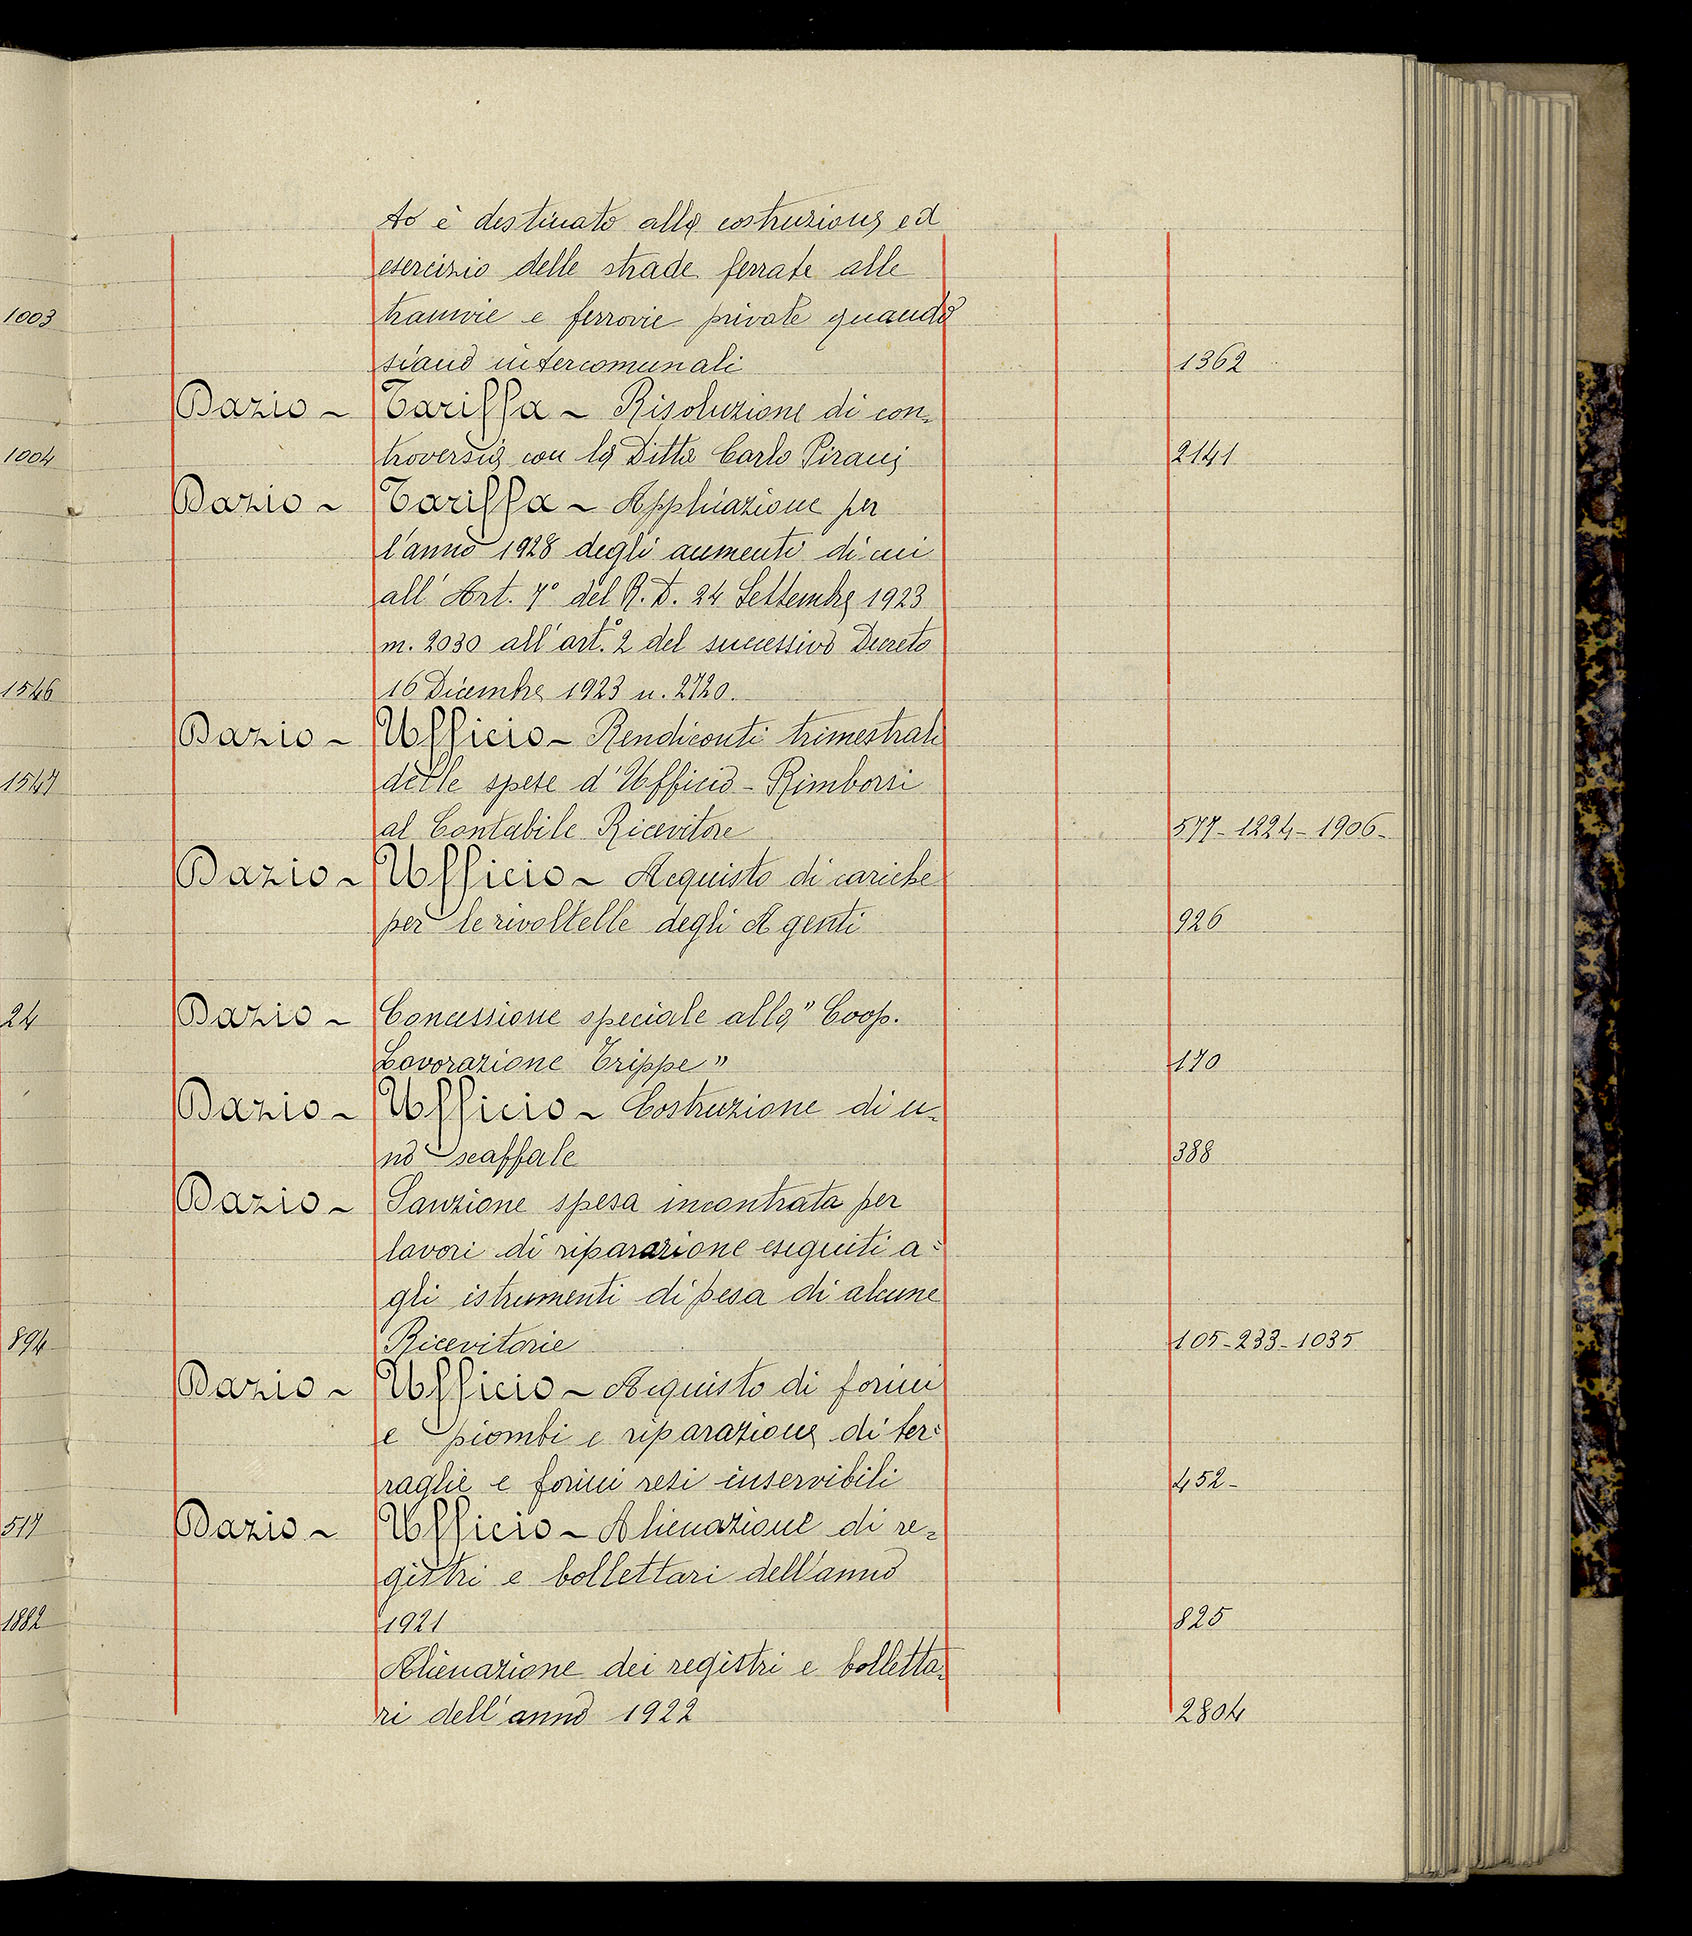 to è destinato alla costruzione ed
esercizio delle strade ferrate alle
1003
tramvie e ferrovie private quando
siano intercomunali 1362
Dazio ~ Tariffa ~ Risoluzione di con=
1004
troversia con la Ditta Carlo Pirani 2141
Dazio ~ Tariffa ~ Applicazione per
l'anno 1928 degli aumenti di cui
all' Art. 7° del R. D. 24 Settembre 1923
n. 2030 all'art.° 2 del successivo Decreto
1546
16 Dicembre 1923 n. 2720.
Dazio ~ Ufficio ~ Rendiconti trimestrali
1547
delle spese d'Ufficio - Rimborsi
al Contabile Ricevitore 577 - 1224 - 1906 -
Dazio ~ Ufficio ~ Acquisto di cariche
per le rivoltelle degli Agenti 926
24
Dazio ~ Concessione speciale alla "Coop.
Lavorazione Trippe" 170
Dazio ~ Ufficio ~ Costruzione di u=
no scaffale 388
Dazio ~ Sanzione spesa incontrata per
lavori di riparazione eseguiti a=
gli istrumenti di pesa di alcune
894
Ricevitorie 105 - 233 - 1035
Dazio ~ Ufficio ~ Acquisto di forini
e piombi e riparazione di ter=
raglie e forini resi inservibili 452 -
517
Dazio ~ Ufficio ~ Alienazione di re=
gistri e bollettari dell'anno
1882
1921 825
Alienazione dei registri e bolletta=
ri dell'anno 1922 2804